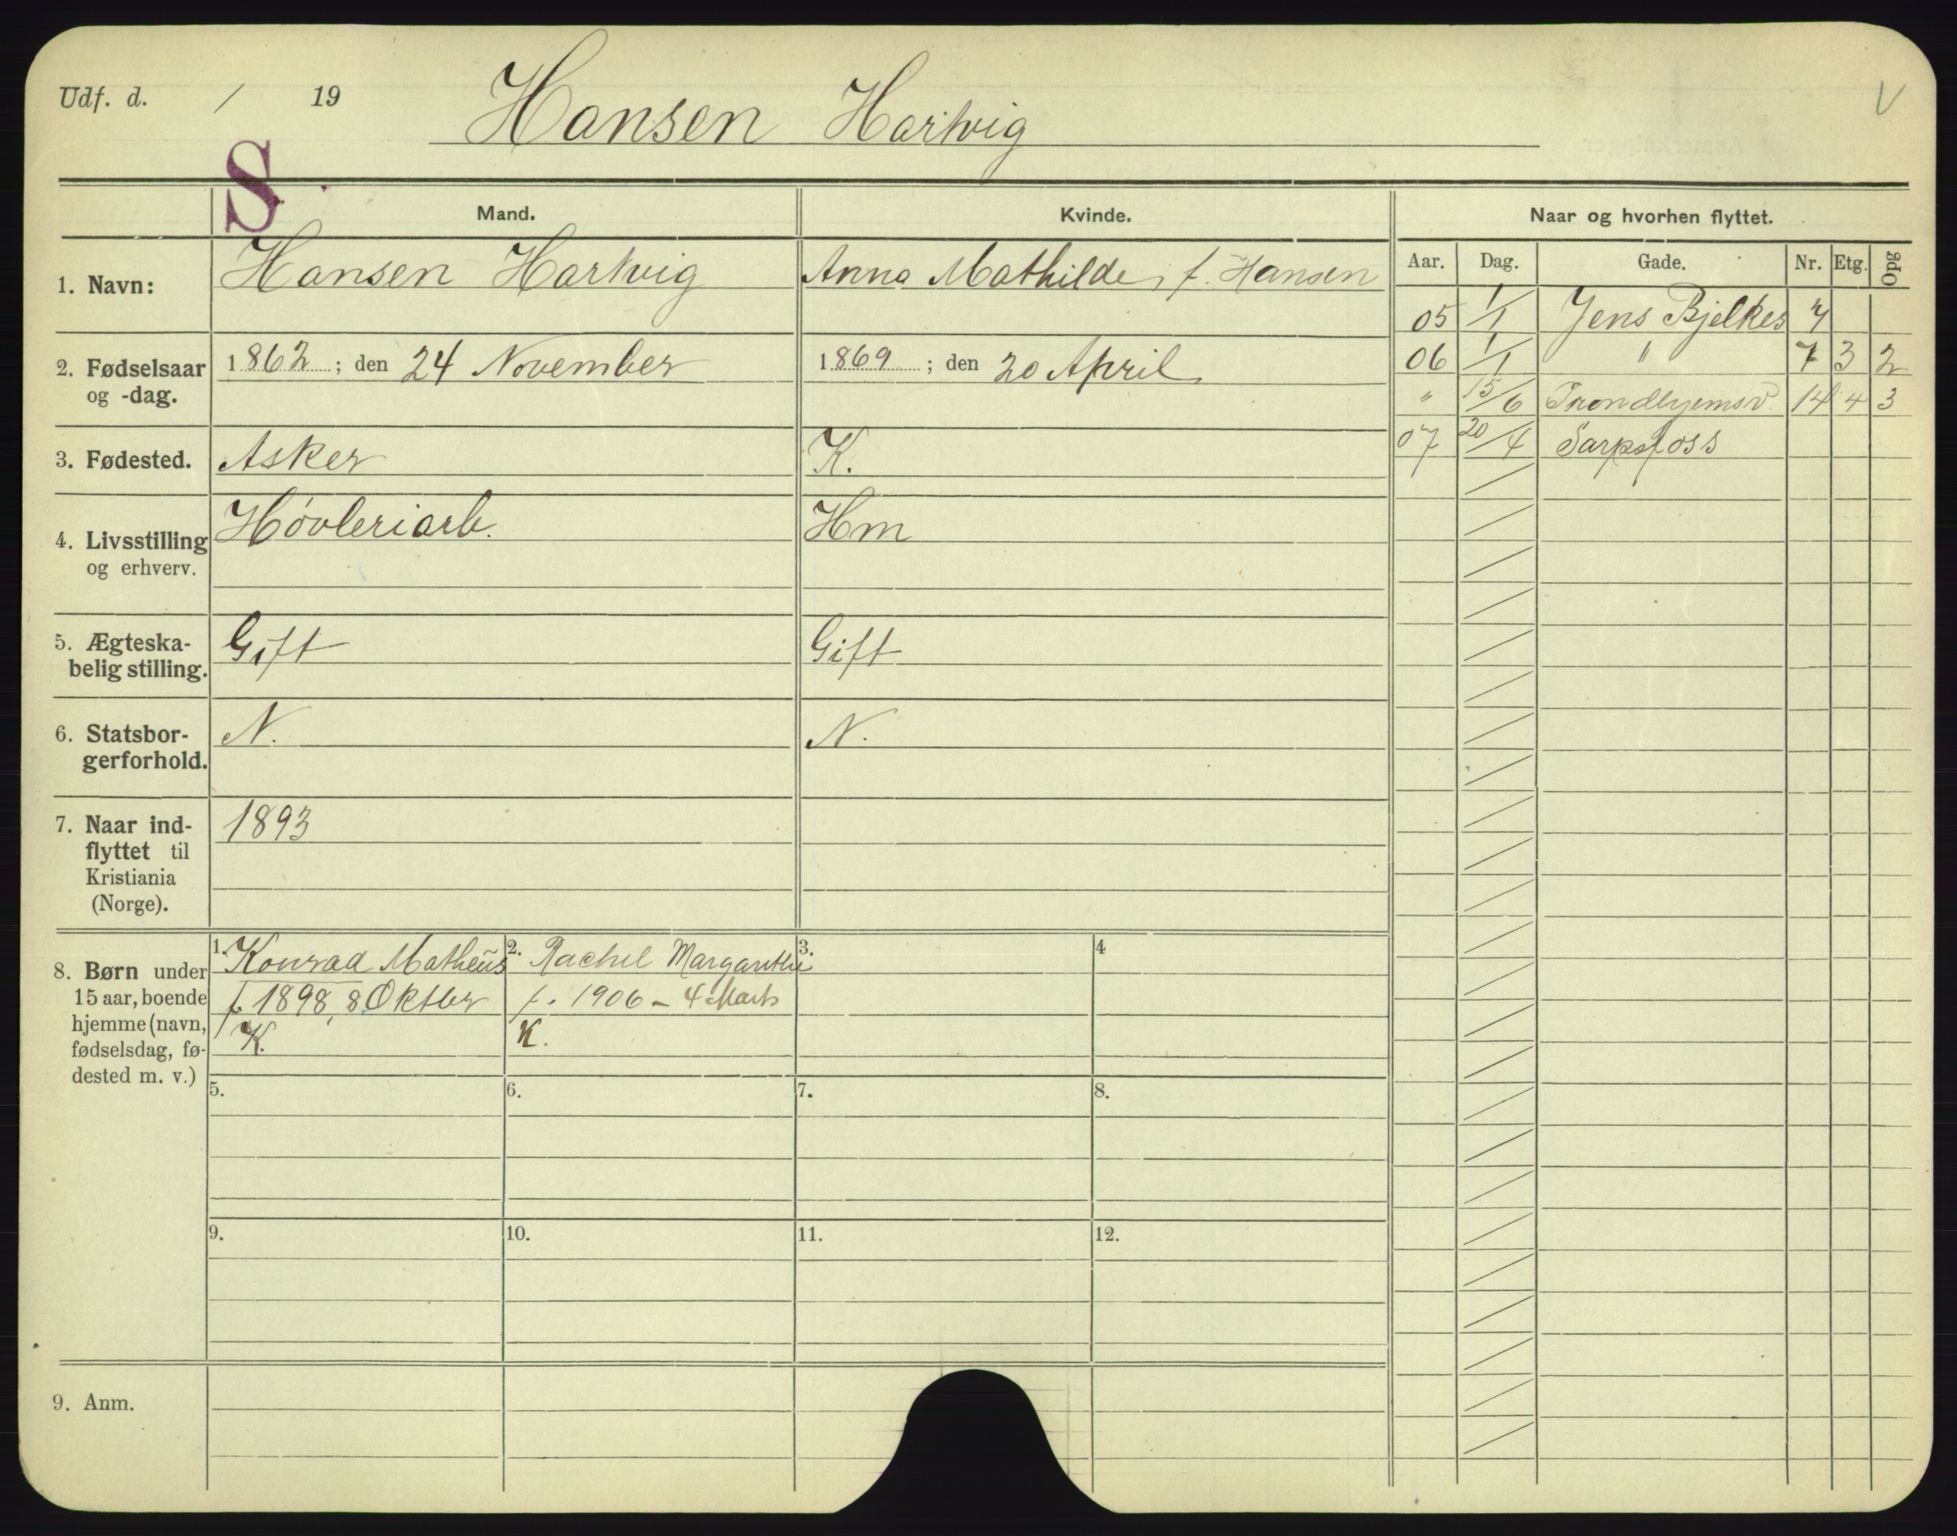 Udf. d. / 19
Hansen Hartvig
V
S
Mand.
Kvinde.
Naar og hvorhen flyttet.
Aar. Dag. Gade. Nr. Etg. Opg
1. Navn:
Hansen Hartvig
Anna Mathilde, f. Hansen
05 1/1 Jens Bjelkes 7
06 1/1 " 7 3 2
" 15/6 Trondhjemsv. 14 4 3
07 20/4 Sarpsfoss
2. Fødselsaar
og -dag.
1862 ; den 24 November
1869 ; den 20 April
3. Fødested.
Asker
K.
4. Livsstilling
og erhverv.
Høvleriarb.
Hm
5. Ægteska-
belig stilling.
Gift
Gift
6. Statsbor-
gerforhold.
N.
N.
7. Naar ind-
flyttet til
Kristiania
(Norge).
1893
8. Børn under
15 aar, boende
hjemme (navn,
fødselsdag, fø-
dested m. v.)
1. Konrad Matheus
f. 1898, 8 Oktber
K.
2. Rachel Margarethe
f. 1906 – 4 Marts
K.
3.
4
5.
6.
7.
8.
9.
10.
11.
12.
9. Anm.